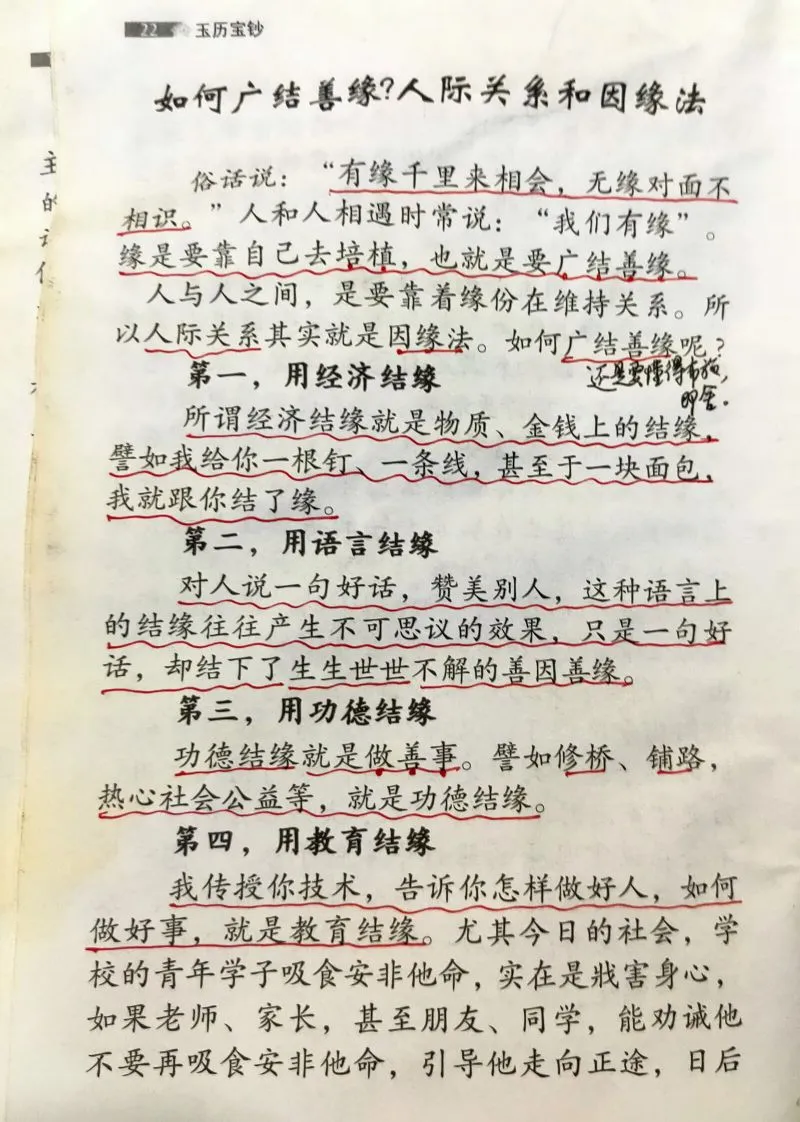 22 玉历宝钞
如何广结善缘?人际关系和因缘法
俗话说：“有缘千里来相会，无缘对面不
相识。”人和人相遇时常说：“我们有缘”。
缘是要靠自己去培植，也就是要广结善缘。
人与人之间，是要靠着缘份在维持关系。所
以人际关系其实就是因缘法。如何广结善缘呢？
还是要懂得布施，
即舍。
第一，用经济结缘
所谓经济结缘就是物质、金钱上的结缘，
譬如我给你一根钉、一条线，甚至于一块面包，
我就跟你结了缘。
第二，用语言结缘
对人说一句好话，赞美别人，这种语言上
的结缘往往产生不可思议的效果，只是一句好
话，却结下了生生世世不解的善因善缘。
第三，用功德结缘
功德结缘就是做善事。譬如修桥、铺路，
热心社会公益等，就是功德结缘。
第四，用教育结缘
我传授你技术，告诉你怎样做好人，如何
做好事，就是教育结缘。尤其今日的社会，学
校的青年学子吸食安非他命，实在是戕害身心，
如果老师、家长，甚至朋友、同学，能劝诫他
不要再吸食安非他命，引导他走向正途，日后